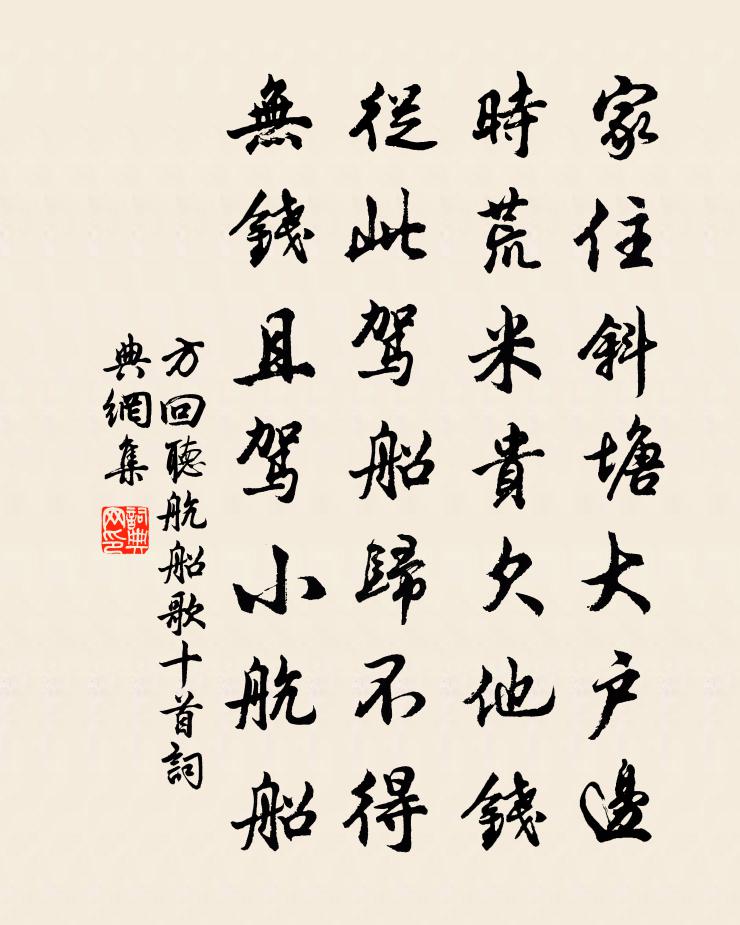 家住斜塘大户邊
時荒米貴欠他錢
從此駕船歸不得
無錢且駕小航船
方回聽航船歌十首詞
典網集
詞典
网印